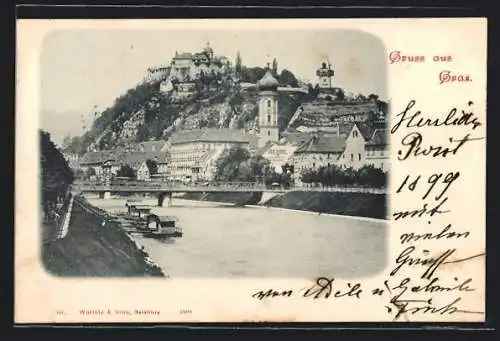 Gruss aus
Graz.
Herzlich
Prosit
1899
mit
vielen
Grüssen
von Adele u Gabriele
Fink
Würthle & Sohn, Salzburg